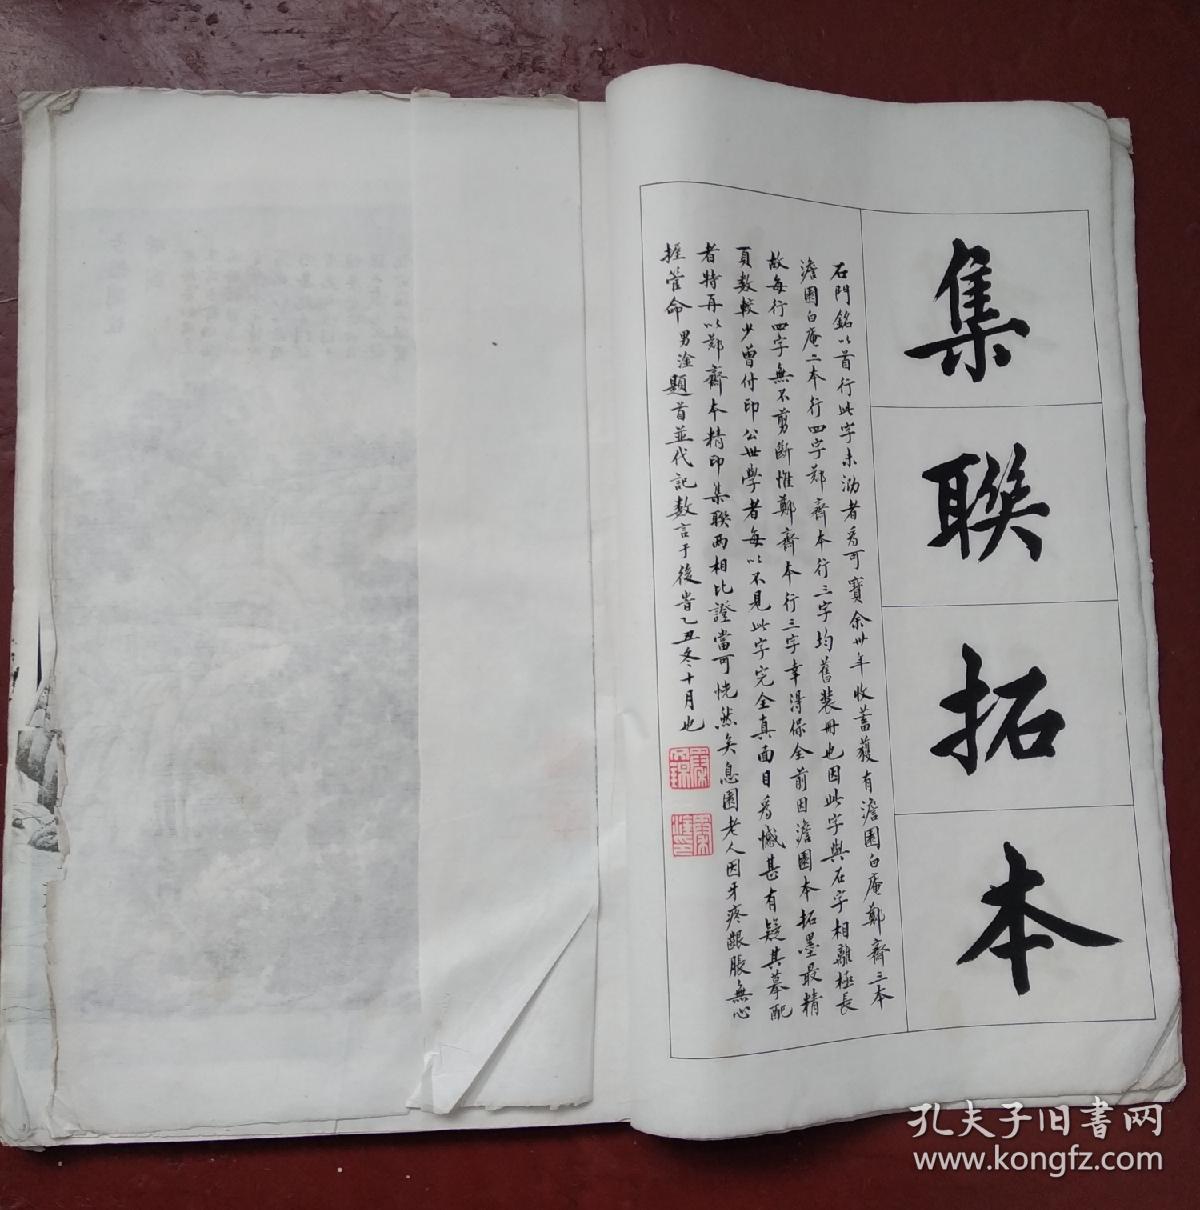 集聯拓本
石門銘以首行此字未泐者為可寶余卅年收蓄獲有澹園白庵鄭齋三本
澹園白庵二本行四字鄭齋本行三字均舊裝冊也因此字與石字相離極長
故每行四字無不剪斷惟鄭齋本行三字幸得保全前因澹園本拓墨最精
頁數較少曾付印公世學者每以不見此字完全真面目為憾甚有疑其摹配
者特再以鄭齋本精印集聯兩相比證當可恍然矣息園老人因牙疼齦脹無心
握管命男淦題首並代記數言于後時乙丑冬十月也
孔夫子旧书网
www.kongfz.com